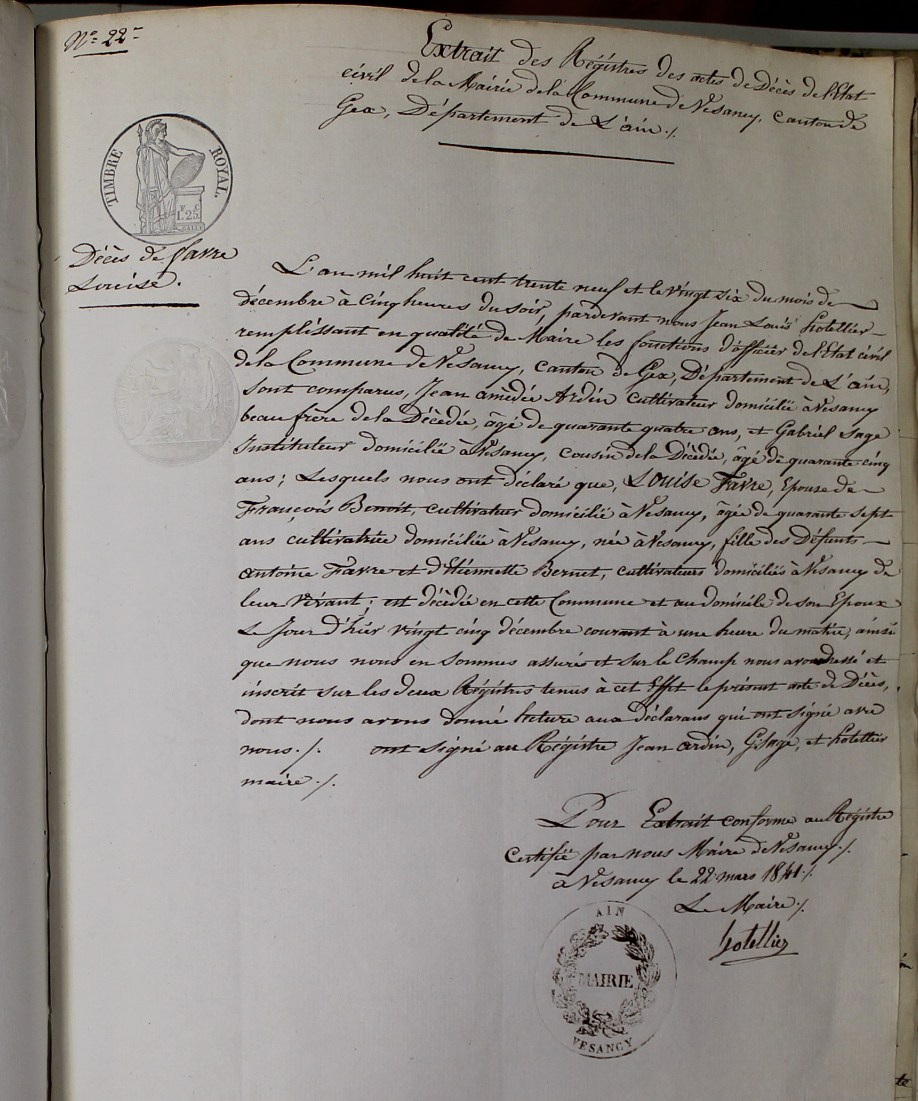 N.° 22
Extrait des Régistres des actes de Décès de l'Etat
civil de la Mairie de la Commune de Vesancy, canton de
Gex, Département de L'ain ./.
TIMBRE ROYAL.
F. C.
1. 25.
Décès de favre
Louise.
L'an mil huit cent trente neuf et le vingt six du mois de
décembre à cinq heures du soir, pardevant nous Jean Louis hotellier
remplissant en qualité de Maire les fonctions d'officier de l'Etat civil
de la Commune de Vesancy, canton de Gex, Département de L'ain,
sont comparus, Jean amédée Ardin cultivateur domicilié à Vesancy
beau frère de la Décédée, âgé de quarante quatre ans, et Gabriel Sage
Instituteur domicilié à Vesancy, cousin de la Décédée, âgé de quarante cinq
ans; Lesquels nous ont déclaré que, Louise Favre, Epouse de
François Benoit, cultivateur domicilié à Vesancy, âgée de quarante sept
ans cultivatrice domiciliée à Vesancy, née à Vesancy, fille des Défunts
antoine Favre et d'Etiennette Bernet, cultivateurs domiciliés à Vesancy de
leur vivant; est décédée en cette Commune et au domicile de son Epoux
Le Jour d'hier vingt cinq décembre courant à une heure du matin, ainsi
que nous nous en sommes assurés et sur le champ nous avons dressé et
inscrit sur les deux Régistres tenus à cet Effet le présent acte de Décès,
dont nous avons donné lecture aux déclarans qui ont signé avec
nous ./. ont signé au Régistre Jean ardin, G. Sage, et hotellier
maire ./.
Pour Extrait conforme au Régistre
Certifié par nous Maire de Vesancy ./.
à Vesancy le 22 mars 1841 ./.
Le Maire ./.
hotellier
AIN
MAIRIE
VESANCY